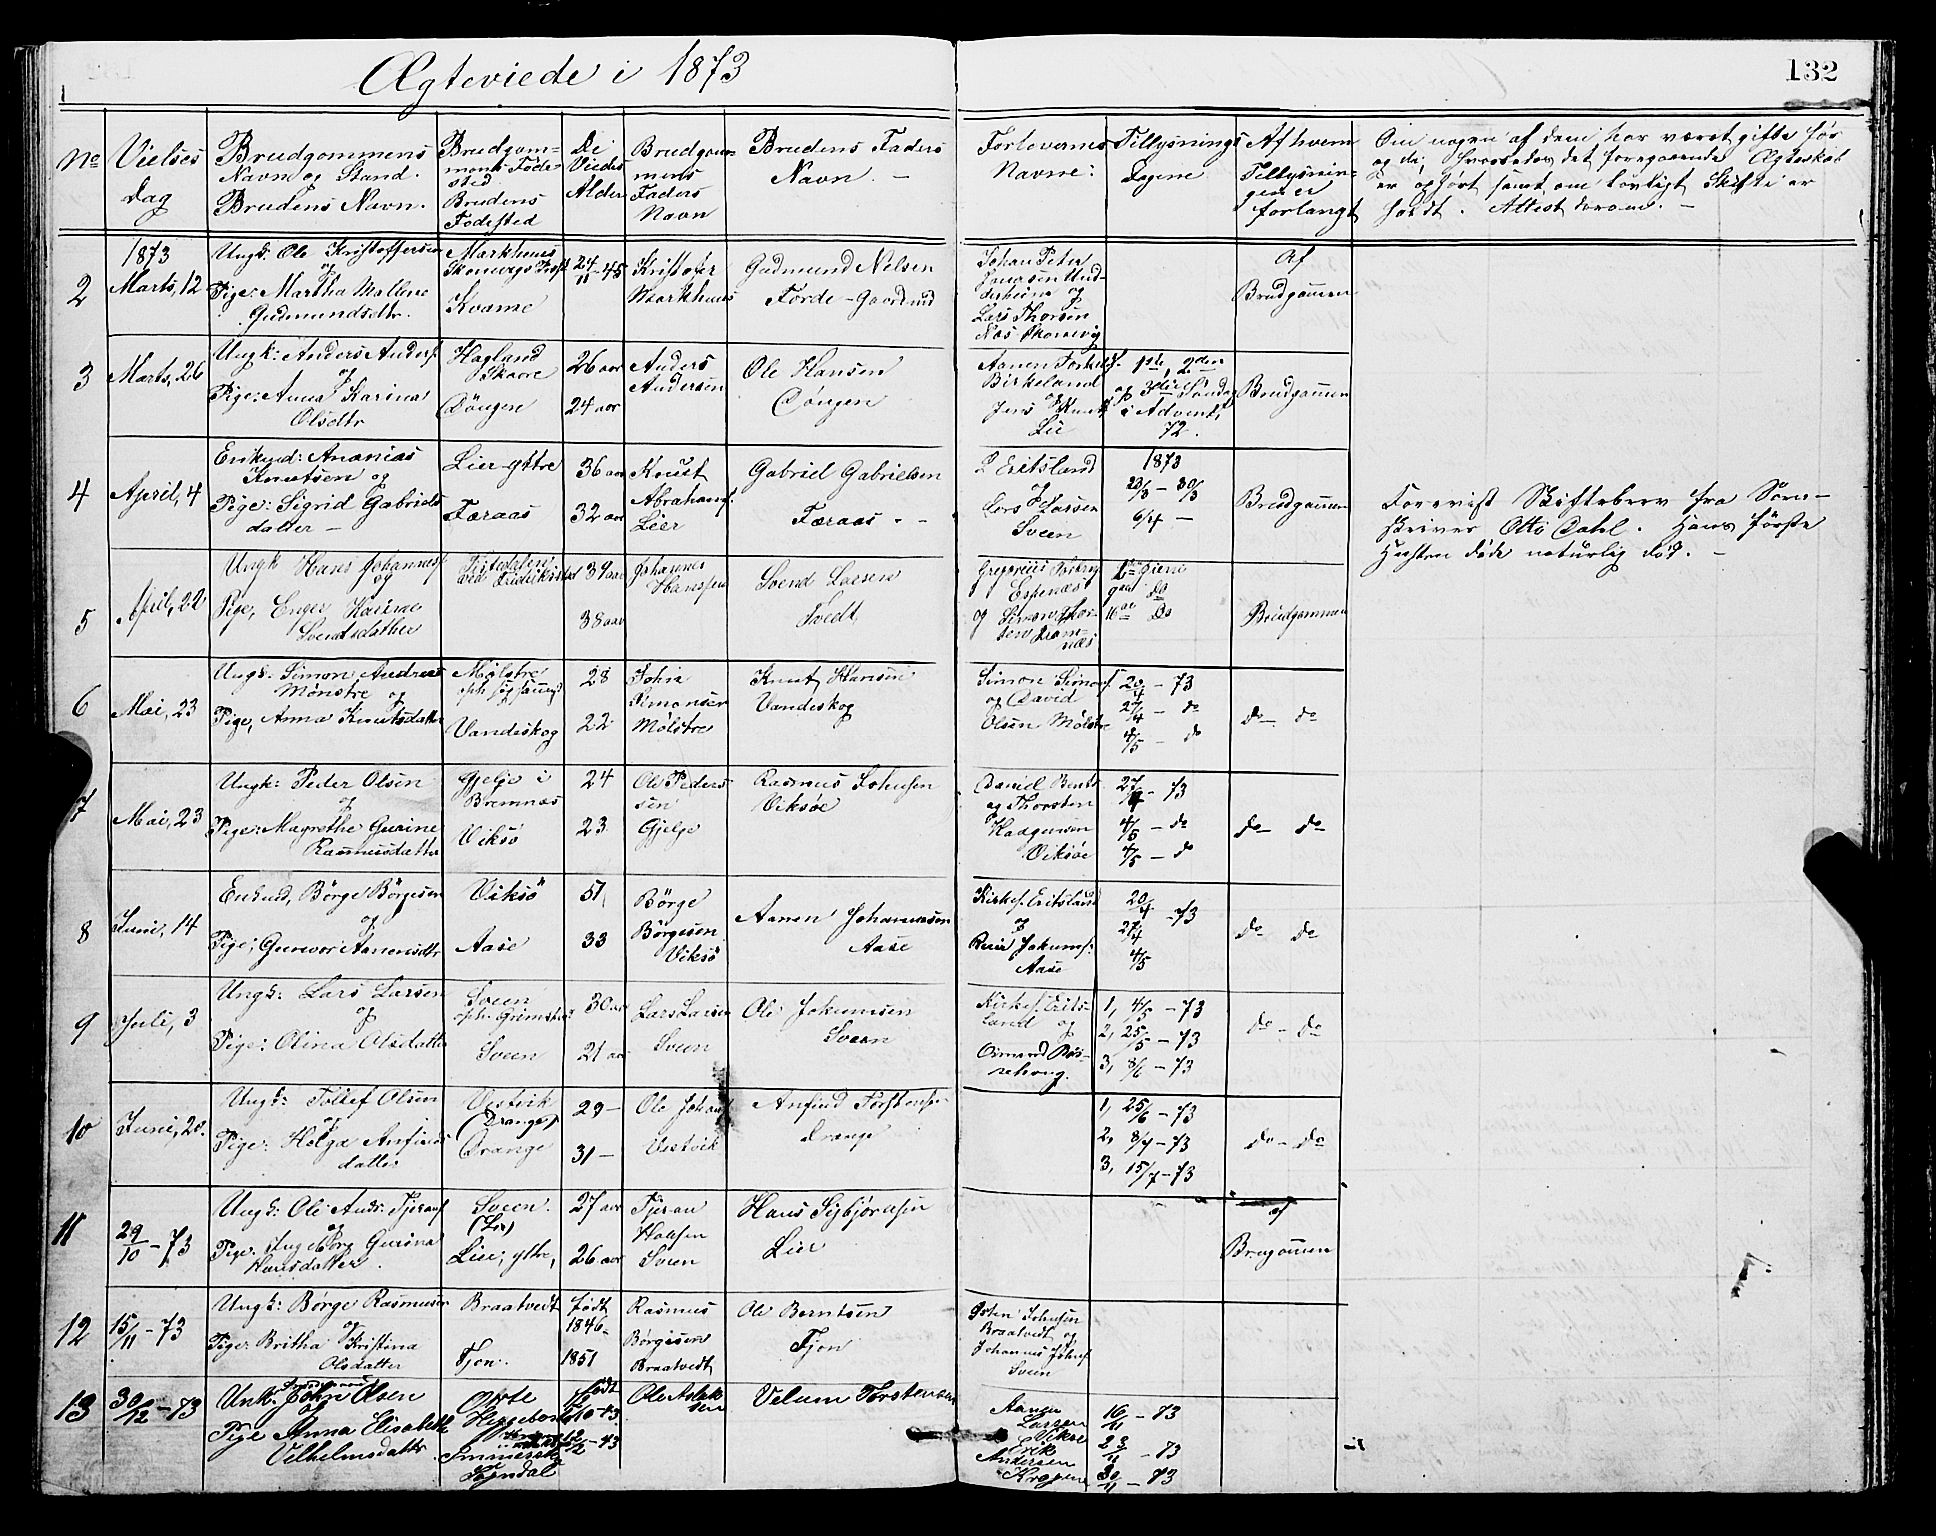 Ægteviede i 1873
132
No
Vielses
dag
Brudgommens
Navn og Stand.
Brudens Navn.
Brudgom-
mens Føde
sted
Brudens
Fødested
De
Viedes
Alder
Brudgom-
mens
Faders
Navn
Brudens Faders
Navn. —
Forlovernes
Navne:
Tillysnings
Dagene
Af hvem
Tillysnin-
gen er
forlangt
Om nogen af dem har været gifte før
og da, hvorledes det foregaaende Ægteskab
er ophørt samt om lovligt Skifte er
holdt. Attest derom. —
2
1873
Marts, 12
Ungk: Ole Kristoffersen
og
Pige: Martha Mallene
Gudmundsdtr.
Markhuus
Skonevigs Præst
Kvame
24/11 - 45
Kristofer
Markhuus
Gudmund Nelsen
Førde - Gaardmd
Johan Peter
og
Lars Thorsen
Næs Skonevig
Af
Brudgomen
3
Marts, 26
Ungk: Anders Anders.
og
Pige: Anna Karina
Olsdtr
Hagland
Skaare
Döngen
26 aar
24 aar
Anders
Andersen
Ole Hansen
Döngen
Aanen Torkels.
Birkeland
og
Jens Knut
Lie
1ste, 2den
og 3die Søndag
i Advent
72.
Brudgomen
4
April, 4
Enkemd: Ananias
Knutsen og
Pige: Sigrid Gabriels
datter —
Lier yttre
Færaas
36 aar
32 aar
Knut
Abrahams.
Lier
Gabriel Gabrielsen
Færaas. -
L Eritsland
og
Lars Larsen
Sveen
1873
23/3 - 30/3
6/4 —
Brudgomen
Forevist Skiftebrev fra Soren-
skriver Otto Dahl. Hans første
Hustru døde naturlig død. —
5
April, 22
Ungk Hans Johannes.
og
Pige, Enger Karine
Svendsdatter
ved Fredrikstad
39 aar
38 aar
Johannes
Hanssen
Svend Larsen
Tvedt
Espenæs
og Simon Thor-
sen
næs
do
16de do
Brudgommen
6
Mai, 23
Ungk: Simon Andreas
Mönstre og
Pige, Anna Knutsdatter
Mölstre
Vandeskog
28
22
John
Simonsen
Mölstre
Knut Hansen
Vandeskog
Simon Simons.
og David
Olsen Mölstre
20/4 - 73
27/4 - do
4/5 - do
do — do
7
Mai, 23
Ungk: Peder Olsen
og
Pige: Magrethe Gurine
Rasmusdatter
Gjelje i
Bremnæs
Viksö
24
23
Ole Peders
sen
Gjelje
Rasmus Johnsen
Viksöe
Daniel Bents
og Thorsten
Haagensen
Viksöe
27/4 - 73
4/5 - do
4/5 - do
do — do
8
Juni, 14
Enkmd, Börge Börgesen
og
Pige; Gunvor Aanensdtr
Viksö
Aase
51
33
Börge
Börgesen
Viksö
Aanen Johannesen
Aase
Kirkes. Eritsland
og
Reier Jokums.
Aase
20/4 - 73
27/4
4/5
do do
9
Juli, 3
Ungk: Lars Larsen
og
Pige: Olina Olsdatter
Sveen
oph. Grimstad
Sveen
30 aar
21 aar
Lars Larsen
Sveen
Ole Jokumsen
Sveen
Kirkes. Erits-
land og
Osmund Røs-
sehoug.
1, 4/5 - 73
2, 25/5 - 73
3, 8/6 - 73
do - do
10
Juni, 20.
Ungk: Tollef Olsen
og
Pige: Helga Anfinds
datter
Vestvik
(Drange)
Drange
29 —
31 —
Ole Johans.
Vestvik
Anfind Torstensen
Drange
1, 25/6 - 73
2, 8/7 - 73
3, 15/7 - 73
do - do
11
29/10 - 73
Ungk: Ole Andr. Tjerans.
og
Pige: Ingeborg Gurina
Hansdatter.
Sveen.
(Lie)
Lier, ytre,
27 aar
26 aar
Tjeran
Sveen
Hans Sigbjörnsen
Lier
af
Brugomen
12
15/11 - 73
Ungk: Börge Rasmusen
og
Pige: Britha Kristina
Olsdatter
Braatvedt
Fjon.
født
1846 -
1851
Rasmus
Börgesen
Braatvedt
Ole Berntsen
Fjon
Østen Johnsen
Braatvedt og
Johannes Johns.
Sveen
13
30/12 - 73
Unk. John Olsen
og
Pige Anna Elisabeth
Vilhelmsdatter.
født
12/2 - 43
Ole Aslak
sen
Velum Torstensen
Aanen
Larsen
Vikse
Erik
Andersen
16/11 - 73
23/11 - 73
30/11 - 73